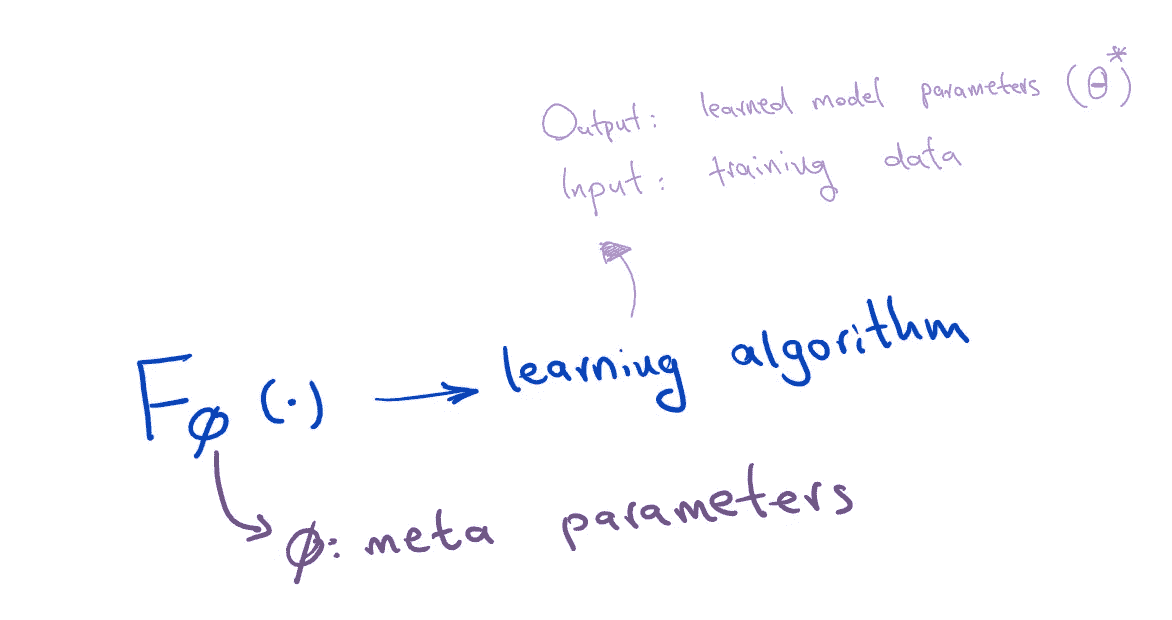 Output: learned model parameters (θ*)
Input: training data
F_ϕ (·) → learning algorithm
ϕ: meta parameters